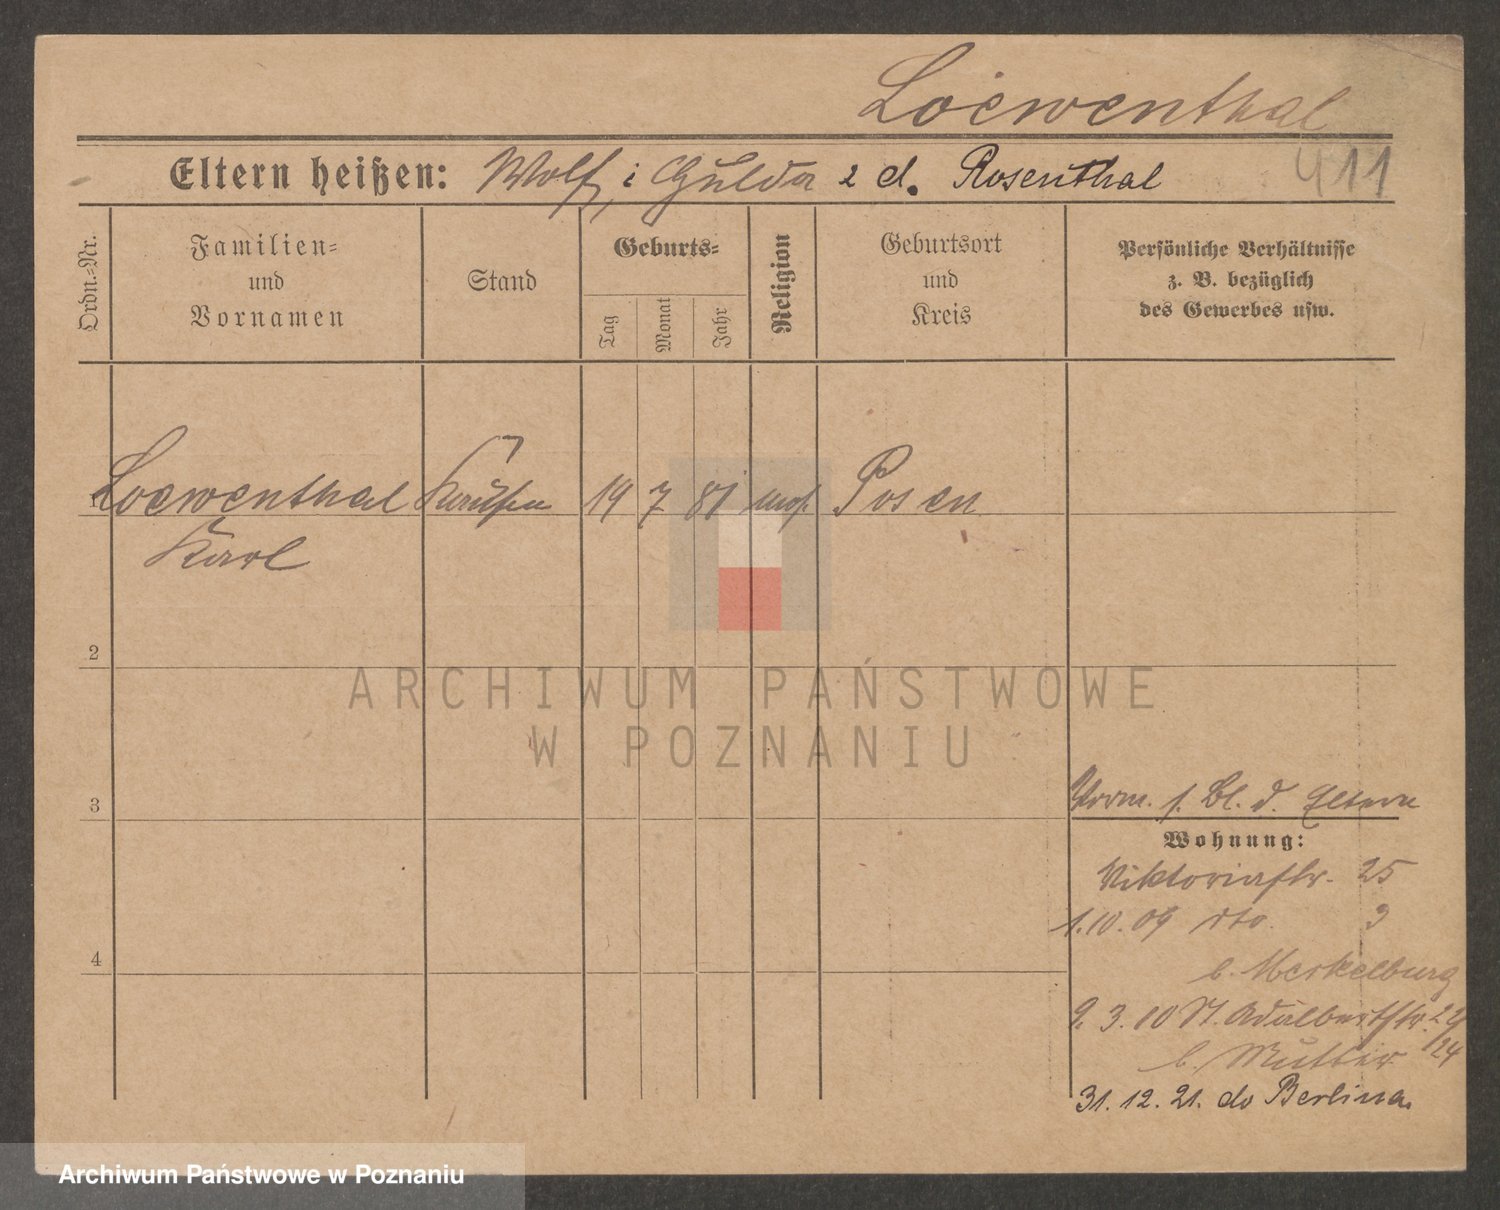 Loewenthal
Eltern heißen: Wolf, i Gulda z d. Rosenthal
411
Ordn.=Nr.
Familien=
und
Vornamen
Stand
Geburts=
Tag
Monat
Jahr
Religion
Geburtsort
und
Kreis
Persönliche Verhältnisse
z. B. bezüglich
des Gewerbes usw.
1 Loewenthal Kaufm 19 7 81 mos. Posen
Karl
2
ARCHIWUM PAŃSTWOWE
W POZNANIU
3
Vorm. s. Bl. d. Eltern
Wohnung:
Viktoriastr. 25
1.10.09 dto. 3
4
b. Merkelburg
9. 3. 10 St. Adalbertstr.
b. Mutter 24
31. 12. 21. do Berlina
Archiwum Państwowe w Poznaniu